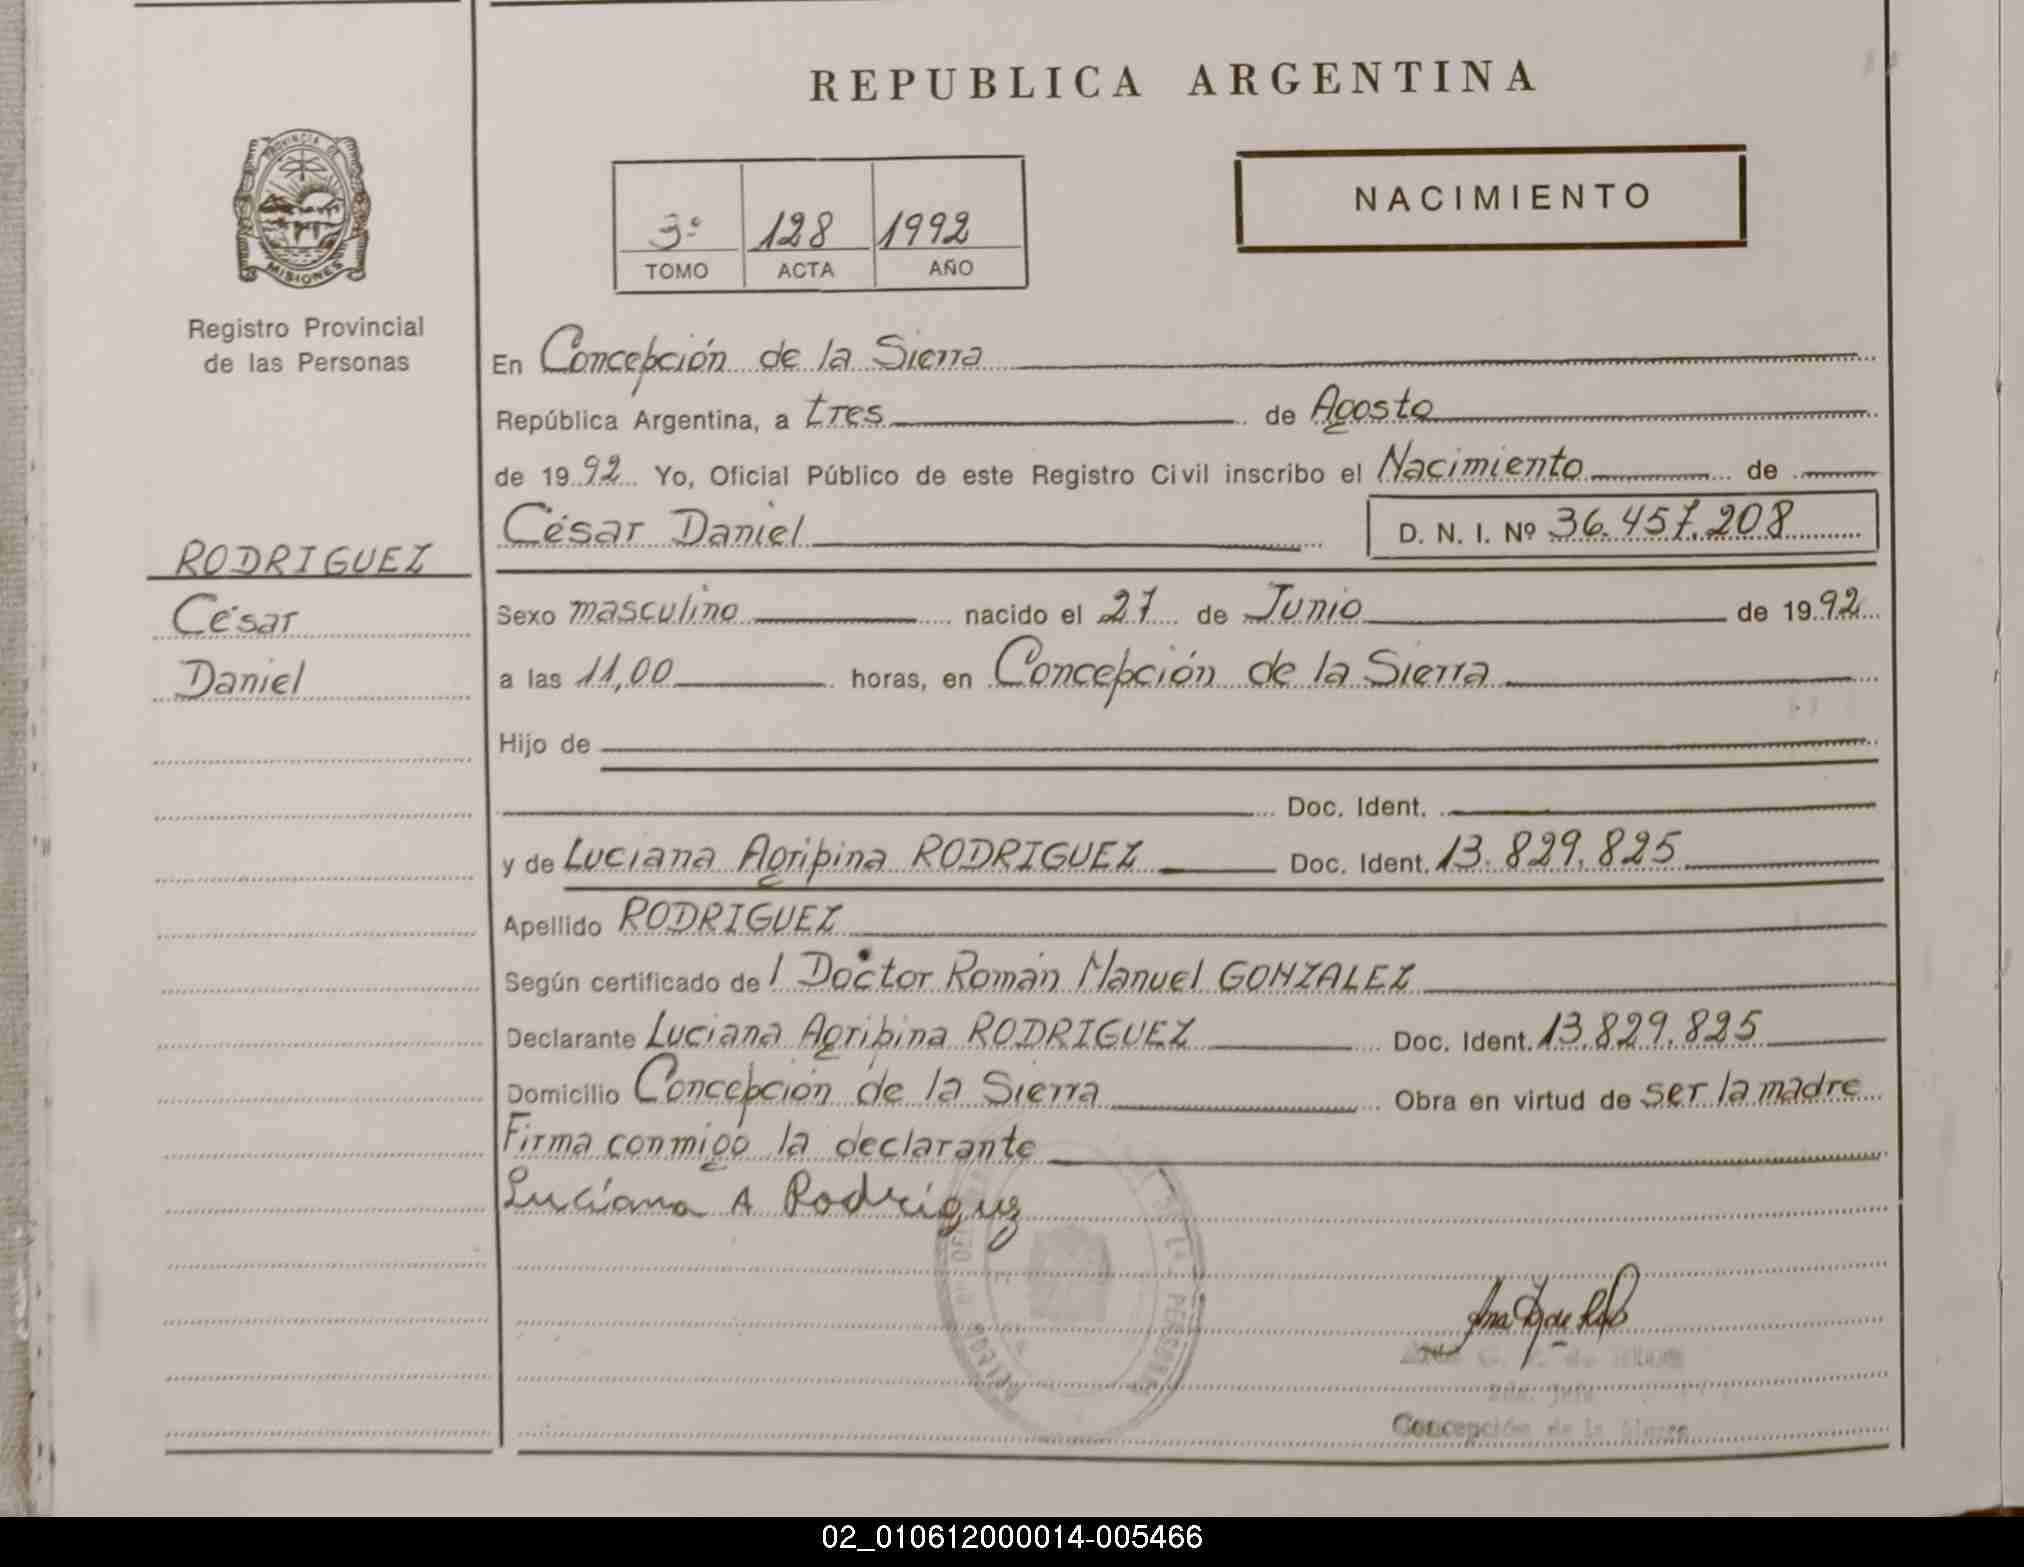 REPUBLICA ARGENTINA
PROVINCIA DE
MISIONES
Registro Provincial
de las Personas
3º 128 1992
TOMO ACTA AÑO
NACIMIENTO
En Concepción de la Sierra
República Argentina, a tres de Agosto
de 1992 Yo, Oficial Público de este Registro Civil inscribo el Nacimiento de
César Daniel D. N. I. Nº 36.457.208
RODRIGUEZ
César
Daniel
Sexo masculino nacido el 27 de Junio de 1992
a las 11,00 horas, en Concepción de la Sierra
Hijo de
Doc. Ident.
y de Luciana Agripina RODRIGUEZ Doc. Ident. 13.829.825
Apellido RODRIGUEZ
Según certificado de l Doctor Román Manuel GONZALEZ
Declarante Luciana Agripina RODRIGUEZ Doc. Ident. 13.829.825
Domicilio Concepción de la Sierra Obra en virtud de ser la madre
Firma conmigo la declarante
Luciana A Rodríguz
Concepción de la Sierra
02_010612000014-005466